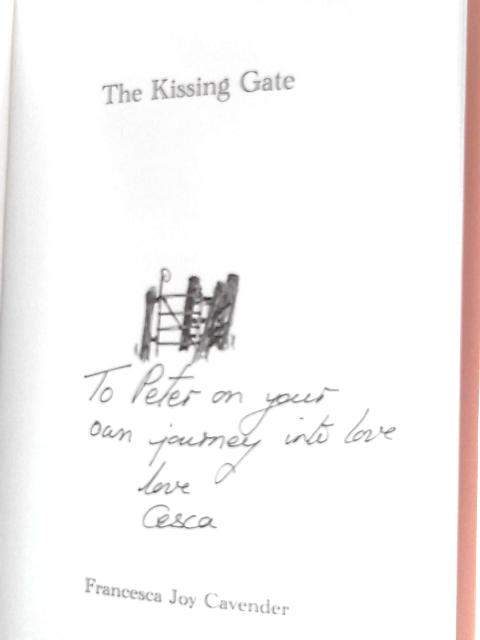 The Kissing Gate
To Peter on your
own journey into love
love
Cesca
Francesca Joy Cavender